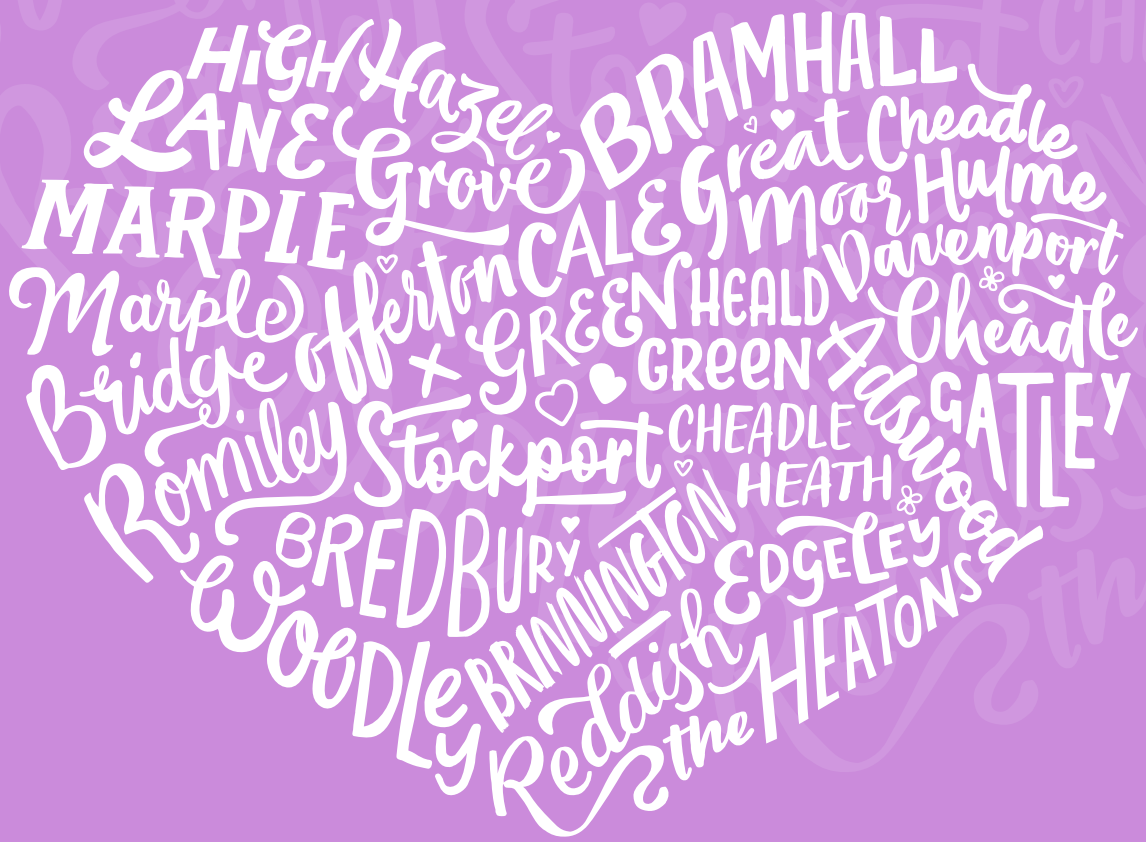 HiGH
LANE
Hazel
Grove
BRAMHALL
Great
moor
Cheadle
Hulme
MARPLE
CALE
GREEN
Davenport
Marple
Bridge
offerton
HEALD
GREEN
Cheadle
Adswood
GATLEY
Romiley
Stockport
CHEADLE
HEATH
BREDBURY
BRINNINGTON
EDGELEY
WOODLey
Reddish
the HEATONS